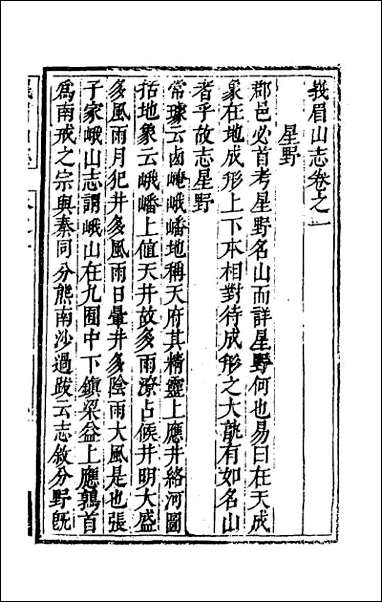 峩眉山志卷之一
星野
郡邑必首考星野名山而詳星野何也易曰在天成
象在地成形上下本相對待成形之大孰有如名山
者乎故志星野
常璩云鹵崦峨嶓地稱天府其精靈上應井絡河圖
括地象云峨嶓上值天井故多雨潦占候井明大盛
多風雨月犯井多風雨日暈井多陰雨大風是也張
子家峨山志謂峨山在九囿中下鎮梁益上應鶉首
爲南戒之宗與秦同分熊南沙過跋云志敘分野旣